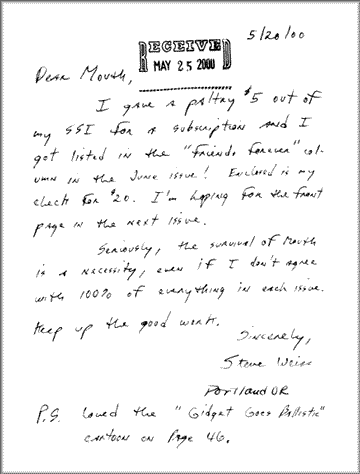 5/20/00
RECEIVED
MAY 25 2000
Dear Mouth,
I gave a paltry $5 out of
my SSI for a subscription and I
got listed in the "Friends Forever" col-
umn in the June issue! Enclosed is my
check for $20. I'm hoping for the front
page in the next issue.
Seriously, the survival of Mouth
is a necessity, even if I don't agree
with 100% of everything in each issue.
Keep up the good work.
Sincerely,
Steve Weiss
Portland OR
P.S. Loved the "Gidget Goes Ballistic"
cartoon on Page 46.